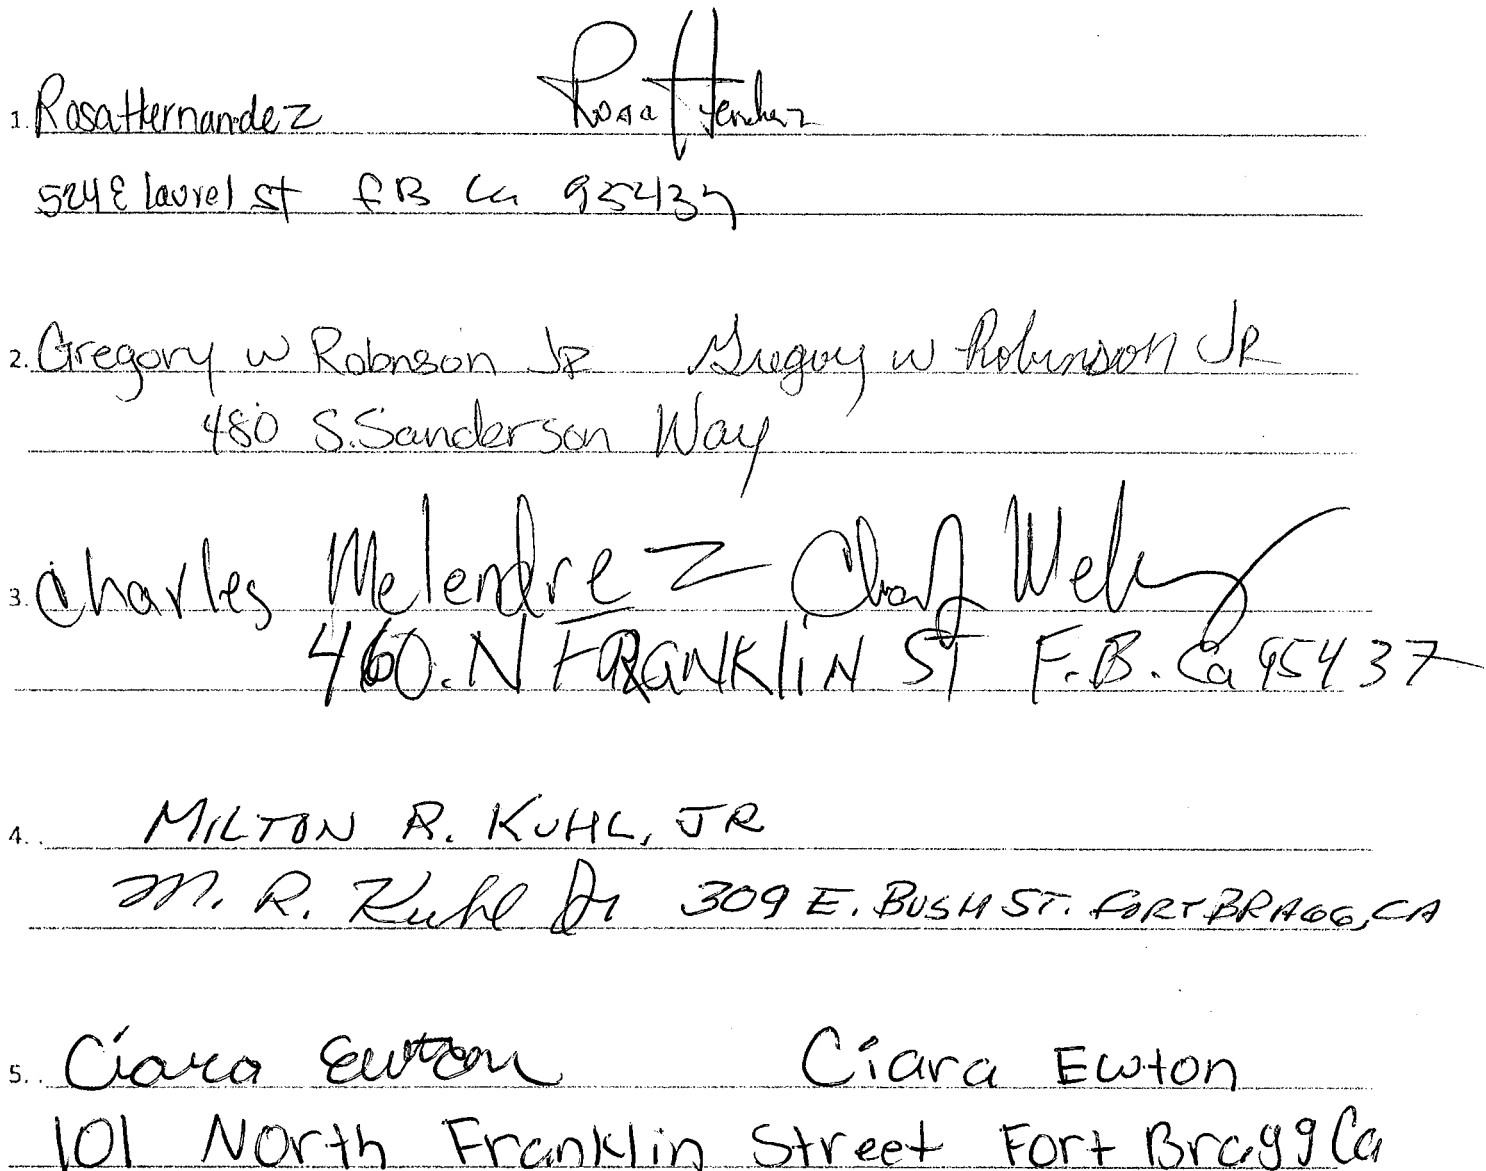 1. Rosa Hernandez Rosa Hernandez
524 E laurel st F B Ca 95437
2. Gregory W Robnson JR Gregory W Robinson JR
480 S. Sanderson Way
3. Charles Melendrez
460. N FRANKliN ST F.B. Ca 95437
4. MILTON R. KUHL, JR
M. R. Kuhl Jr 309 E. BUSH ST. FORT BRAGG, CA
5. Ciara Ewton Ciara Ewton
101 North Franklin Street Fort Bragg Ca